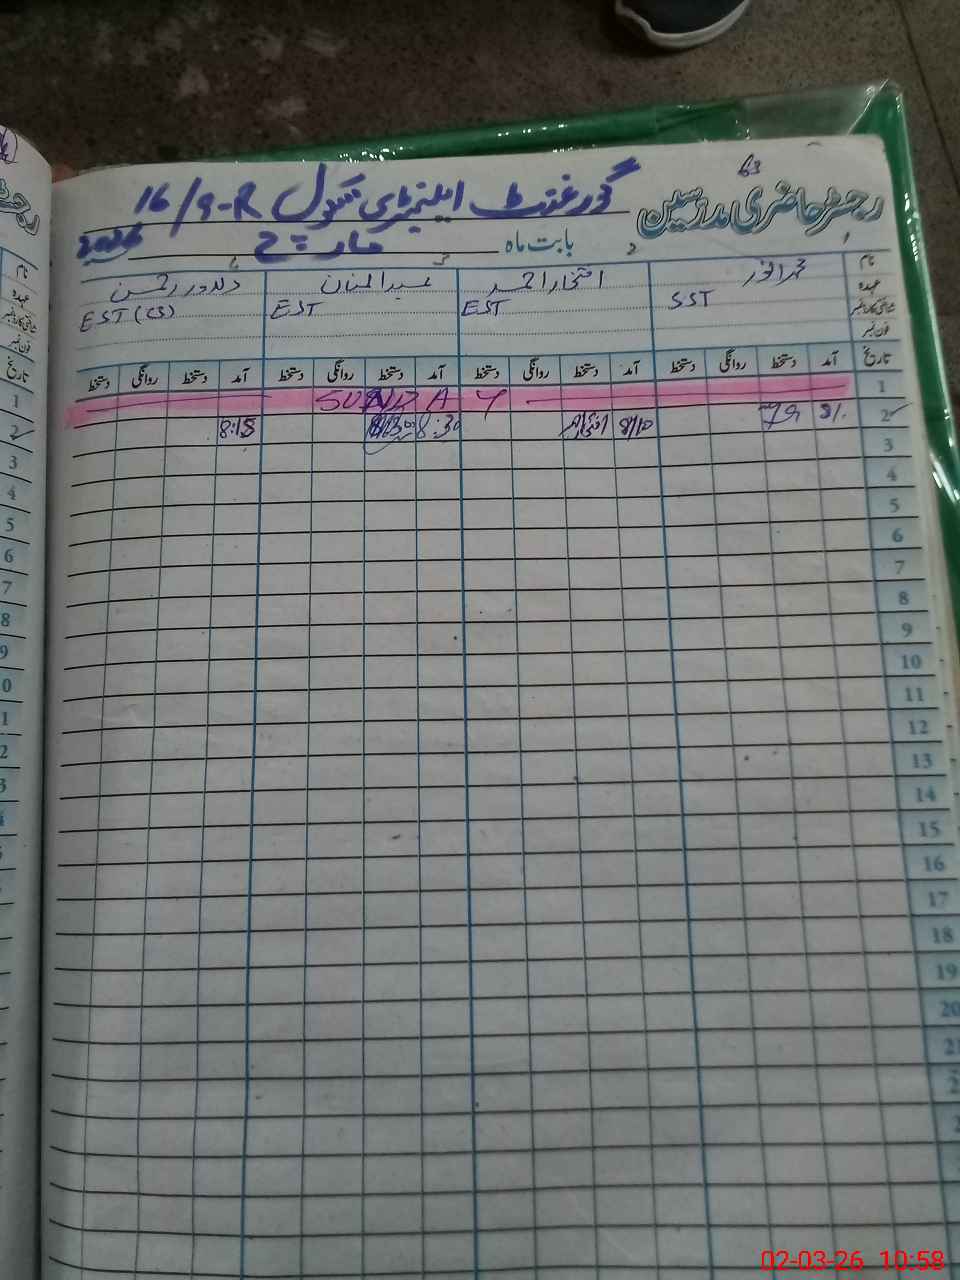 63
رجسٹر حاضری مدرسین گورنمنٹ ایلیمنٹری سکول 16/9-R
بابت ماہ مارچ 2026
نام محمد انور افتخار احمد عبدالمنان
عہدہ SST EST EST EST (CS)
شناختی کارڈ نمبر
فون نمبر
تاریخ آمد دستخط روانگی دستخط آمد دستخط روانگی دستخط آمد دستخط روانگی دستخط آمد دستخط روانگی دستخط
1 SUNDAY
2 8/10 8:30 8:15
3
4
5
6
7
8
9
10
11
12
13
14
15
16
17
18
19
20
21
02-03-26 10:58